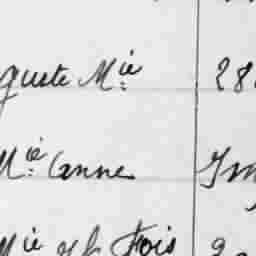 guste Mie 28
Mie Anne Im
Mie Fois